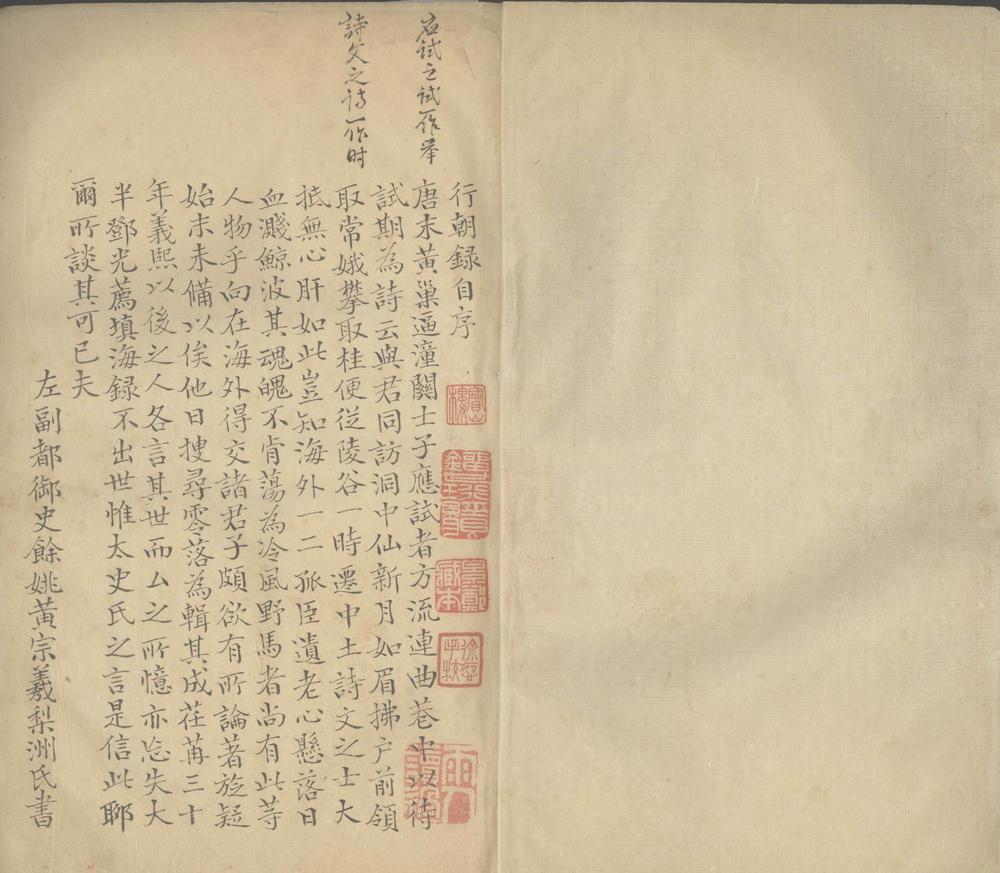 应试之试一作举
詩文之诗一作时
行朝録自序
唐末黃巢逼潼關士子應試者方流連曲巷中以待
試期為詩云與君同訪洞中仙新月如眉拂户前領
取常娥攀取桂便從陵谷一時遷中土詩文之士大
抵無心肝如此豈知海外一二孤臣遺老心懸落日
血濺鯨波其魂魄不肯蕩為冷風野馬者尚有此等
人物乎向在海外得交諸君子頗欲有所論著旋疑
始末未備以俟他日搜尋零落為輯其成荏苒三十
年義熙以後之人各言其世而厶之所憶亦忘失大
半鄧光薦填海録不出世惟太史氏之言是信此聊
爾所談其可已夫
左副都御史餘姚黃宗羲梨洲氏書